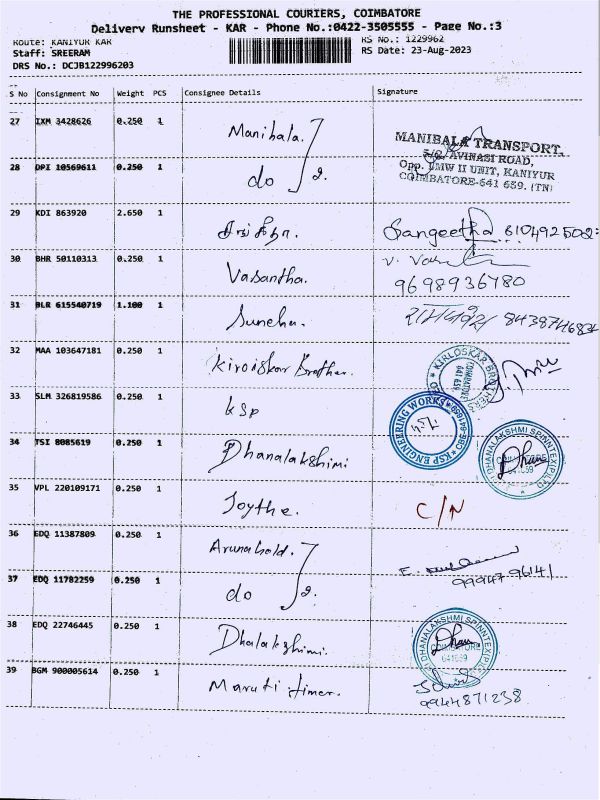 THE PROFESSIONAL COURIERS, COIMBATORE
Delivery Runsheet - KAR - Phone No.:0422-3505555 - Page No.:3
Route: KANIYUR KAR
RS No.: 1229962
Staff: SREERAM
RS Date: 23-Aug-2023
DRS No.: DCJB122996203
S No Consignment No Weight PCS Consignee Details Signature
27 IXM 3428626 0.250 1 Manibala.
MANIBALA TRANSPORT,
AVINASI ROAD,
Opp. BMW II UNIT, KANIYUR
COIMBATORE-641 659. (TN)
28 OPI 10569611 0.250 1 do 2.
29 KDI 863920 2.650 1 Sangeetha
30 BHR 50110313 0.250 1 Vasantha. 9698936780
31 BLR 615540719 1.100 1
32 MAA 103647181 0.250 1 Kiroiskar Brother.
KIRLOSKAR BROTHERS
COIMBATORE
641 659
33 SLM 326819586 0.250 1 KSP
KSP ENGINEERING WORKS
34 TSI 8085619 0.250 1 Dhanalakshimi
DHANALAKSHMI SPINNTEX(P)LTD
COIMBATORE
641659
35 VPL 220109171 0.250 1 Joythe. C/N
36 EDQ 11387809 0.250 1
37 EDQ 11782259 0.250 1 do 2. 9994796141
38 EDQ 22746445 0.250 1 Dhalakshimi.
DHANALAKSHMI SPINNTEX(P)LTD
COIMBATORE
641659
39 BGM 900005614 0.250 1 Maruti timer.
9944871238